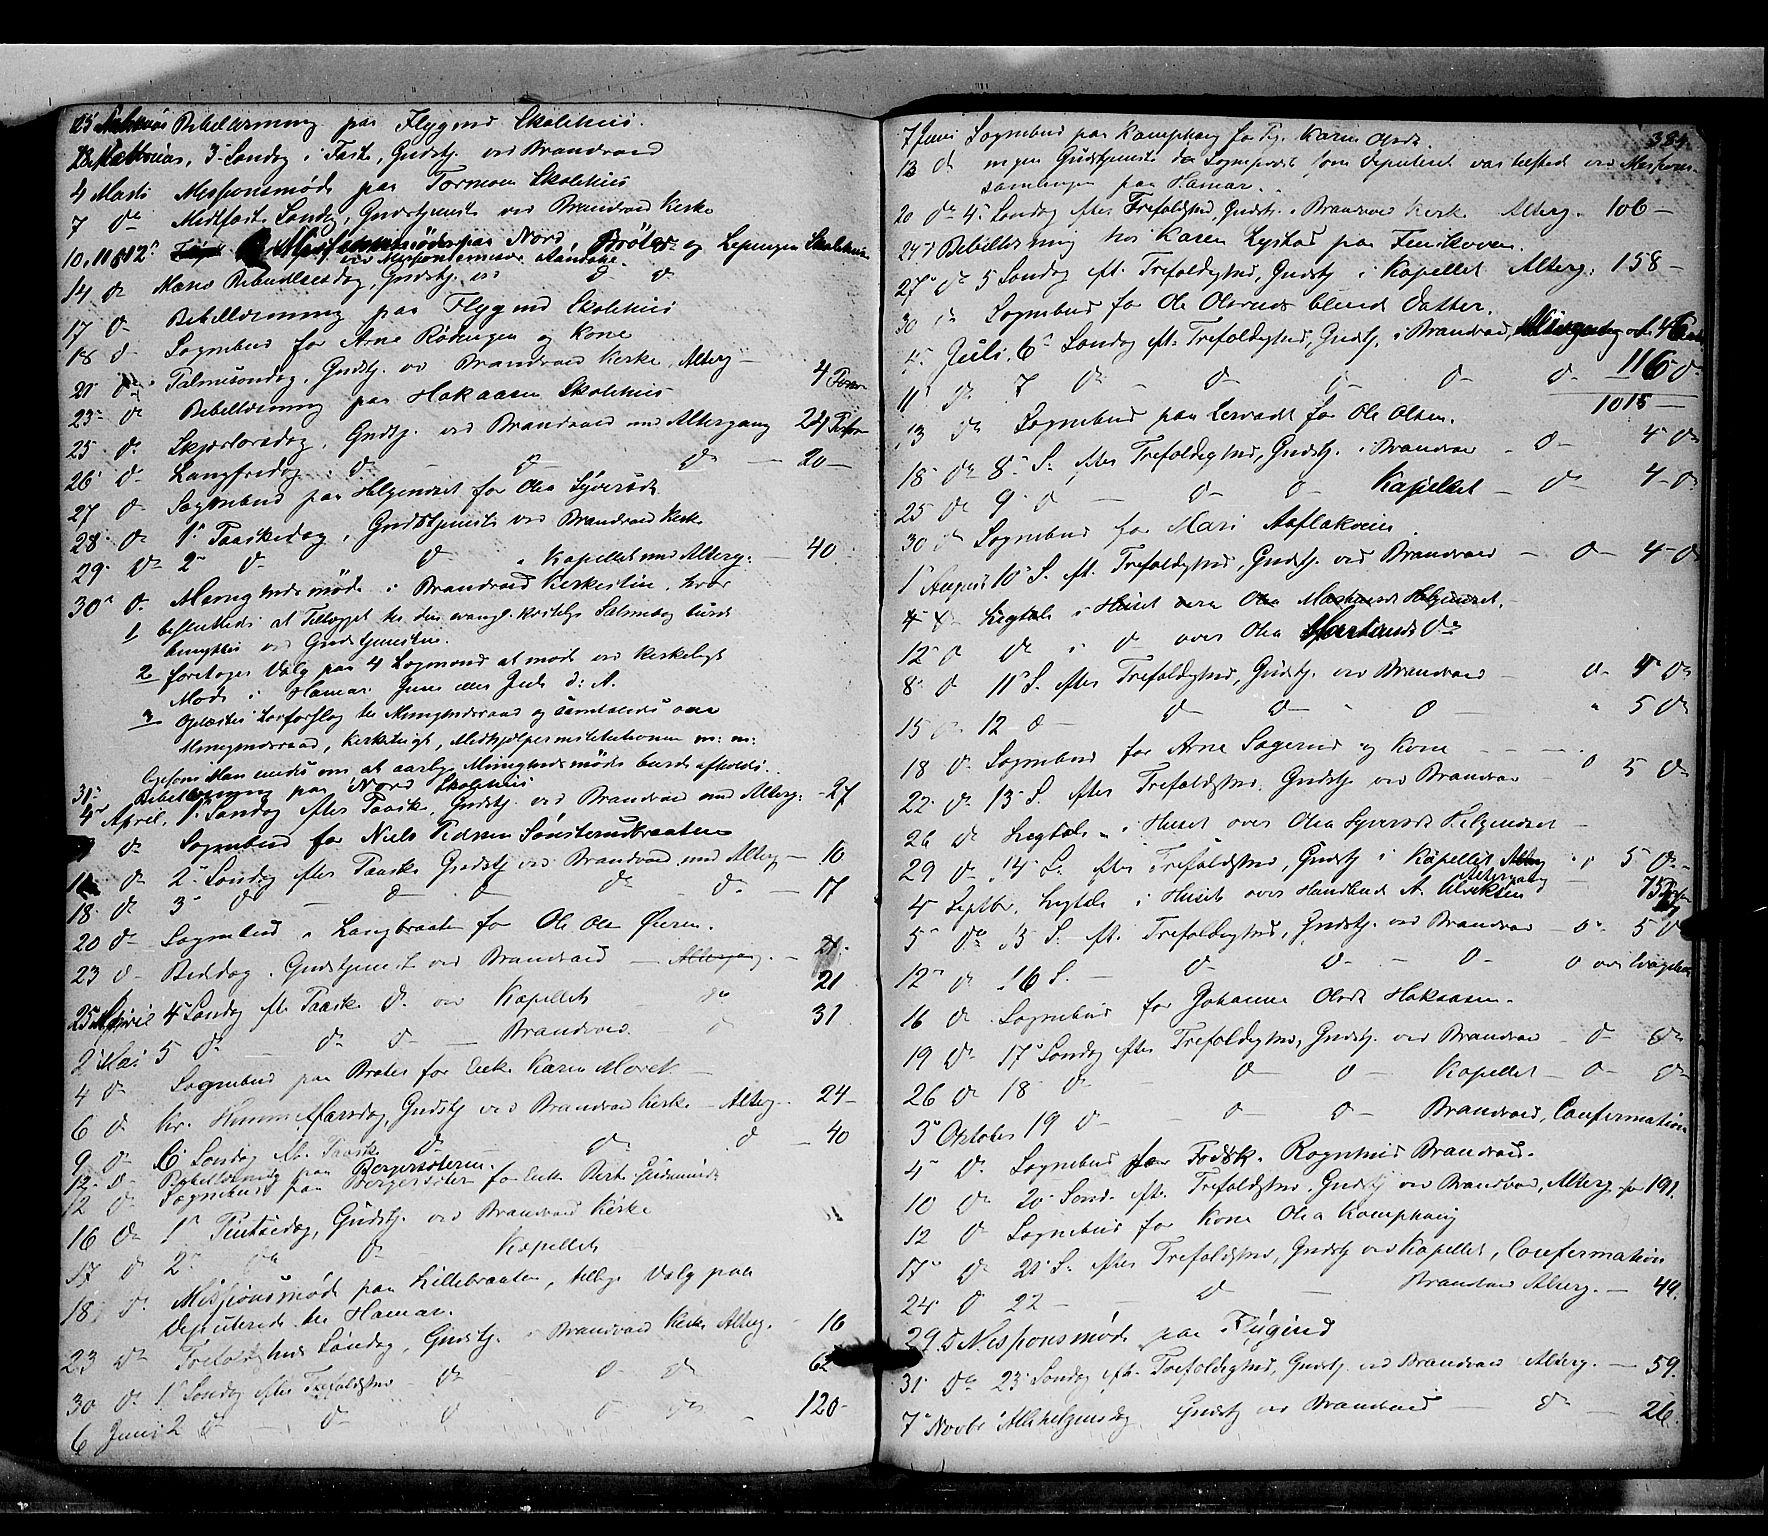 25 Februar Bibellæsning paa Flygind Skolehus.
28 Februar, 3 Søndag i Faste, Gudstj. ved Brandvold
4 Marts Missionsmøde paa Tormoen Skolehus
7 do Midfaste Søndag, Gudstjeneste ved Brandvold Kirke
10, 11 & 12 Missionsmøder paa Nord, Brøter og Lepingen Skolehuse
ved Missionsemissær
14 do Mariæ Bebudelsesdag, Gudstj. ved do do
17 do Bibellæsning paa Flygind Skolehus
18 do Sognebud for Arne Rønningen og Kone
21 do Palmesøndag, Gudstj. ved Brandvold Kirke, Alterg. – 4 Person
23 do Bibellæsning paa Hokaasen Skolehus
25 do Skjærtorsdag, Gudstj. ved Brandvold med Altergang 24 Person
26 do Langfredag do – do do – 20 –
27 do Sognebud paa Helgeneset for Olea Syversd.
28 do 1 Paaskedag, Gudstjeneste ved Brandvold Kirke
29 do 2 do do " Kapellet med Alterg. – 40
30 do Menighedsmøde i Brandvold Kirkestue, hvor
1 besluttedes at Tillægget til den evangl. kristelige Salmebog burde
benyttes ved Gudstjenesten.
2 foretoges Valg paa 4 Lægmænd at møde ved kirkeligt
Møde i Hamar Juni eller Juli d: A.
3 Oplæstes Lovforslag til Menighedsraad og samtaledes om
Menighedsraad, Kirketugt, Medhjælperinstitutionen m: m:
ligesom Man enedes om at aarlige Menighedsmøde burde afholdes.
31 Bibellæsning paa Nord Skolehus
4 April, 1 Søndag efter Paaske, Gudstj. ved Brandvold med Alterg: – 27
do Sognebud for Niels Pedersen Sønsterudbraaten
11 do 2 Søndag efter Paaske Gudstj. ved Brandvold med Alterg – 10
18 do 3 do – do do do do – 17
20 do Sognebud i Langbraaten for Ole Olsen Øieren.
23 do Beddag, Gudstjeneste ved Brandvold – Altergang. – 21
25 April 4 Søndag efter Paaske do ved Kapellet – do 21
2 Mai 5 do – do do – Brandvold do 31
4 do Sognebud paa Brøter for Enke Karen Moret –
6 do Kr. Himmelfartsdag, Gudstj. ved Brandvold Kirke – Alterg. 24 –
9 do 6 Søndag ef. Paaske do do do – 40
12 do Bibellæsning paa Bergersæteren.
12 do Sognebud paa Bergersæteren for Enke Berte Gudmunds
16 do 1 Pintsedag, Gudstj. ved Brandvold Kirke
17 do 2 do do – Kapellet –
18 do Missionsmøde paa Lillebraaten, tillige Valg paa
Deputerede til Hamar.
23 do Trefoldigheds Søndag, Gudstj. i Brandvold Kirke Alterg. – 16
30 do 1 Søndag efter Trefoldighed – do do do 62
6 Juni 2 do – do do do do – 120 –
384.
7 Juni Sognebud paa Kamphaug for Pg. Karen Olsd.
13 do ingen Gudstjeneste da Sognepræst som deputeret var tilstede ved Missions-
samlingen paa Hamar.
20 do 4 Søndag efter Trefoldighed, Gudstj. i Brandvold Kirke Alterg. 106 –
24 do Bibellæsning hos Karen Lystad paa Finskoven.
27 do 5 Søndag eft. Trefoldighed, Gudstj i Kapellet Alterg. 158 –
30 do Sognebud for Ole Olsruds blinde Datter.
4 Juli, 6 Søndag eft. Trefoldighed, Gudstj. i Brandvold,
11 do 7 do – do do do do 116 do
1015 –
13 do Sognebud paa for Ole Olsen.
18 do 8 S. efter Trefoldighed, Gudstj. i Brandvold – do 4 do
25 do 9 do – do do Kapellet – do 4 do
30 do Sognebud for Mari Aaflakveien.
1 August 10 S. eft. Trefoldighed, Gudstj. ved Brandvold – do – 4 do
4 do Liigtale i Huset over Olea Helgeneset.
12 do do i do over Olea do
8 do 11 S. efter Trefoldighed, Gudstj. ved Brandvold – do 4 do
15 do 12 do – do do " do – " 5 do
18 do Sognebud for Arne Sagerud og Kone – – – .
22 do 13 S. efter Trefoldighed, Gudstj ved Brandvold – do 5 do
26 do Liigtale i Huset over Olea Syversd. Helgeneset –
29 do 14 S. efter Trefoldighed, Gudstj i Kapellet Alterg " 5 do
Altergang
4 Septbr. Liigtale i Huset over Handlende A. – 75
5 do 15 S. eft. Trefoldighed, Gudstj. ved Brandvold – do 5 do
12 do 16 S. – do do – do do
16 do Sognebud for Johanne Olsd. Hokaasen.
19 do 17 Søndag efter Trefoldighed, Gudstj. ved Brandvold – do do
26 do 18 do – do do – Kapellet – do – do
3 Oktober 19 do – do do – Brandvold, Confirmation
4 do Sognebud for Fødsk. Ragnhild Brandvold.
10 do 20 Sønd. eft. Trefoldighed, Gudstj ved Brandvold, Alterg. for 191.
12 do Sognebud for Kone Olea Kamphaug
17 do 21 S. efter Trefoldighed, Gudstj ved Kapellet, Confirmation
24 do 22 – – do – Brandvold Alterg. – 49.
29. do Missionsmøde paa Flygind
31 do 23 Søndag eft. Trefoldighed, Gudstj. ved Brandvold Alterg. – 59.
7 Novbr Allehelgensdag Gudstj ved Brandvold – do – 26.